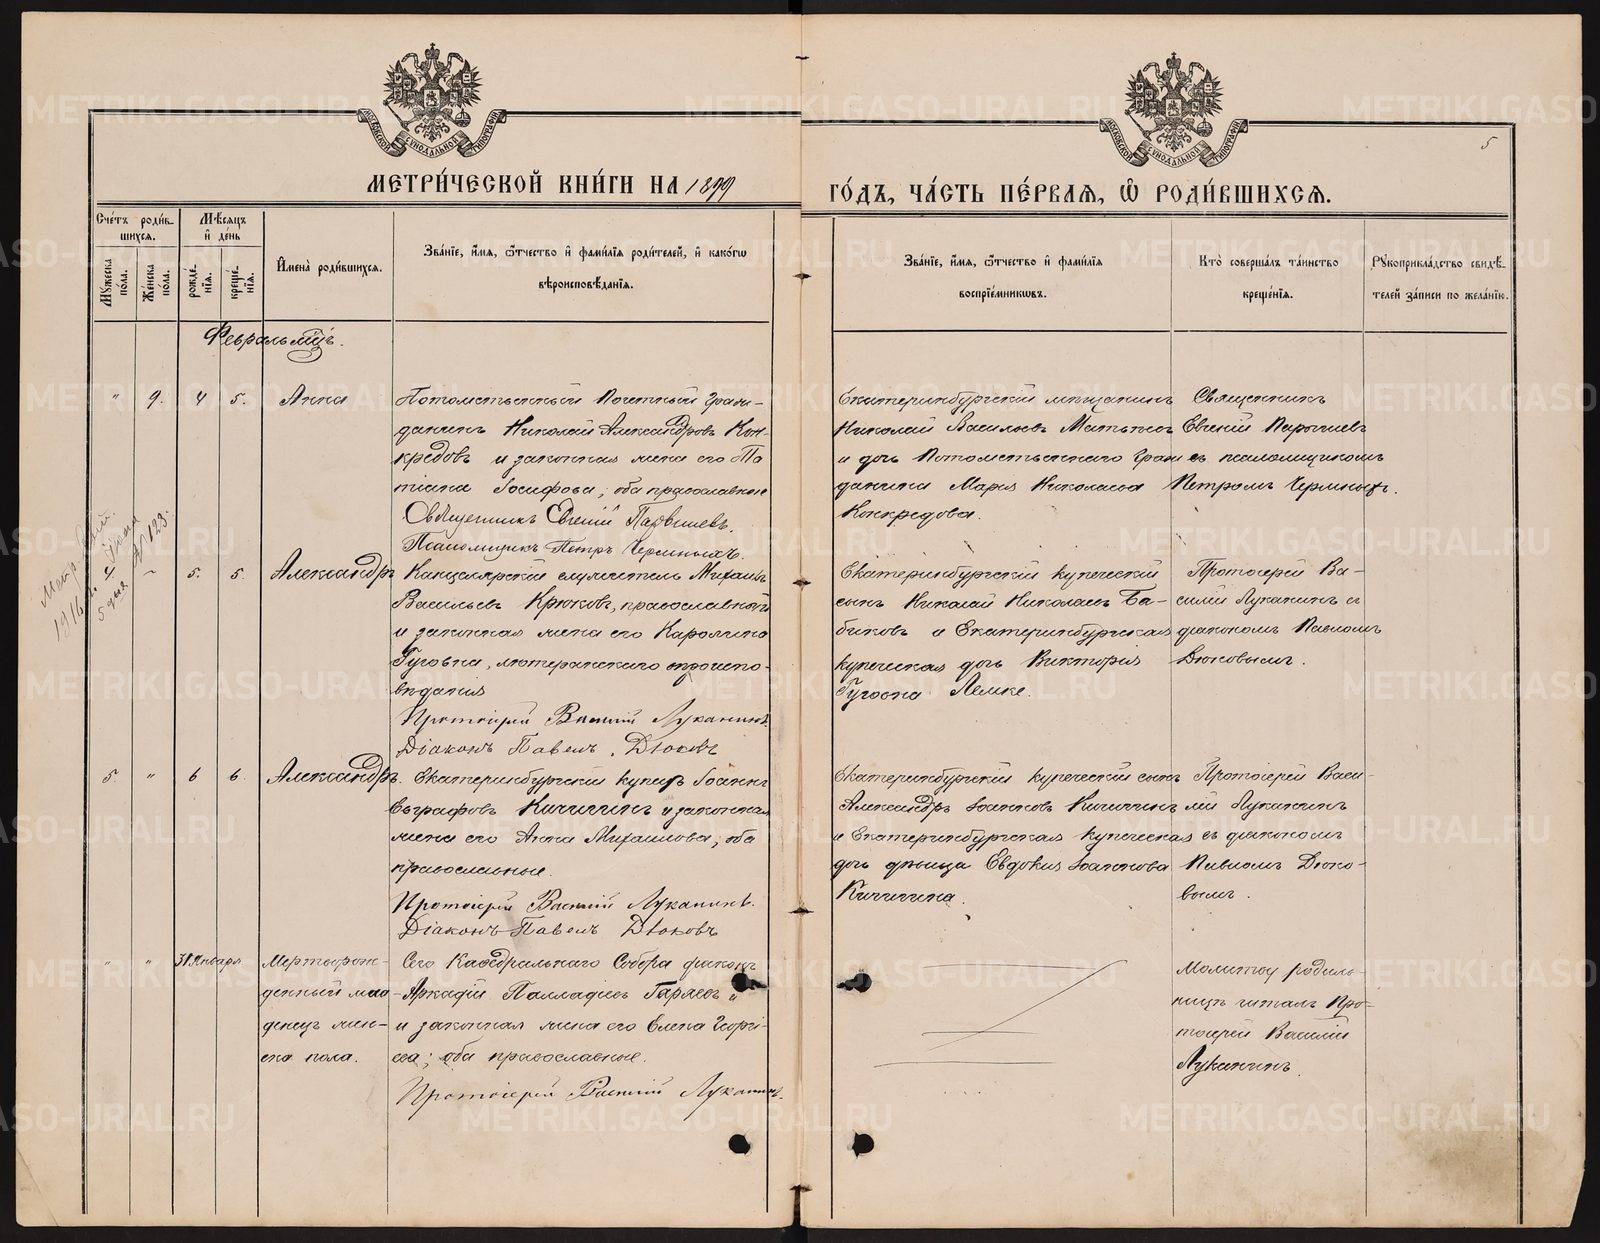 МЕТРИ́ЧЕСКОЙ КНИ́ГИ НА 1899
ГО́ДЪ, ЧА́СТЬ ПЕ́РВАЯ, Ѡ РОДИ́ВШИХСЯ.
5
Сче́тъ роди́вшихся.
Му́жеска по́ла.
Же́нска по́ла.
Мѣ́сяцъ и де́нь
рожде́нїя.
креще́нїя.
Имена̀ роди́вшихся.
Зва́нїе, и́мя, ѻ́тчество и фами́лїя роди́телей, и како́гѡ
вѣроисповѣ́данїя.
Зва́нїе, и́мя, ѻ́тчество и фами́лїя
воспрїе́мникѡвъ.
Кто̀ соверша́лъ та́инство
креще́нїя.
Рукоприкла́дство свидѣ́-
телей за́писи по жела́нїю.
Февраль мцъ.
" 9. 4 5. Анна
Потомственный Почетный граж-
данинъ Николай Александровъ Кон-
кредовъ и законная жена его Та
тиана Іосифова; оба православные
Священникъ Евгеній
Псаломщикъ Петръ Черемныхъ.
Екатеринбургскій мѣщанинъ
Николай Васильевъ
и дочь Потомственнаго Граж
данина Марія Николаева
Конкредова.
Священникъ
Евгеній
съ псаломщикомъ
Петромъ
1916 г.
5 дня № 123.
5. 5. Александръ
Канцелярскій служитель Михаилъ
Васильевъ Крюковъ, православный
и законная жена его Каролина
Гуговна, лютеранскаго вѣроиспо-
вѣданія
Протоіерей Василій Луканинъ.
Діаконъ Павелъ Дюковъ
Екатеринбургскій купеческій
сынъ Николай Николаевъ Ба-
биковъ и Екатеринбургская
купеческая дочь Викторія
Гуговна Лемке.
Протоіерей Ва-
силій Луканинъ съ
діакономъ Павломъ
Дюковымъ.
5 " 6 6. Александръ.
Екатеринбургскій купецъ Іоаннъ
Евграфовъ и законная
жена его Анна Михаилова; оба
православные.
Протоіерей Василій Луканинъ.
Діаконъ Павелъ Дюковъ
Екатеринбургскій купеческій сынъ
Александръ Іоанновъ
и Екатеринбургская купеческая
дочь дѣвица Евдокія Іоаннова
Протоіерей Васи-
лій Луканинъ
съ діакономъ
Павломъ Дюко-
вымъ.
" " 31 Января
Мертворож-
денный мла-
денецъ жен-
ска пола.
Сего Каѳедральнаго Собора діаконъ
Аркадій Палладіевъ Гаряевъ
и законная жена его Елена Георгі-
ева; оба православные.
Протоіерей Василій Луканинъ.
Молитву родиль-
ницѣ читалъ Про-
тоіерей Василій
Луканинъ.